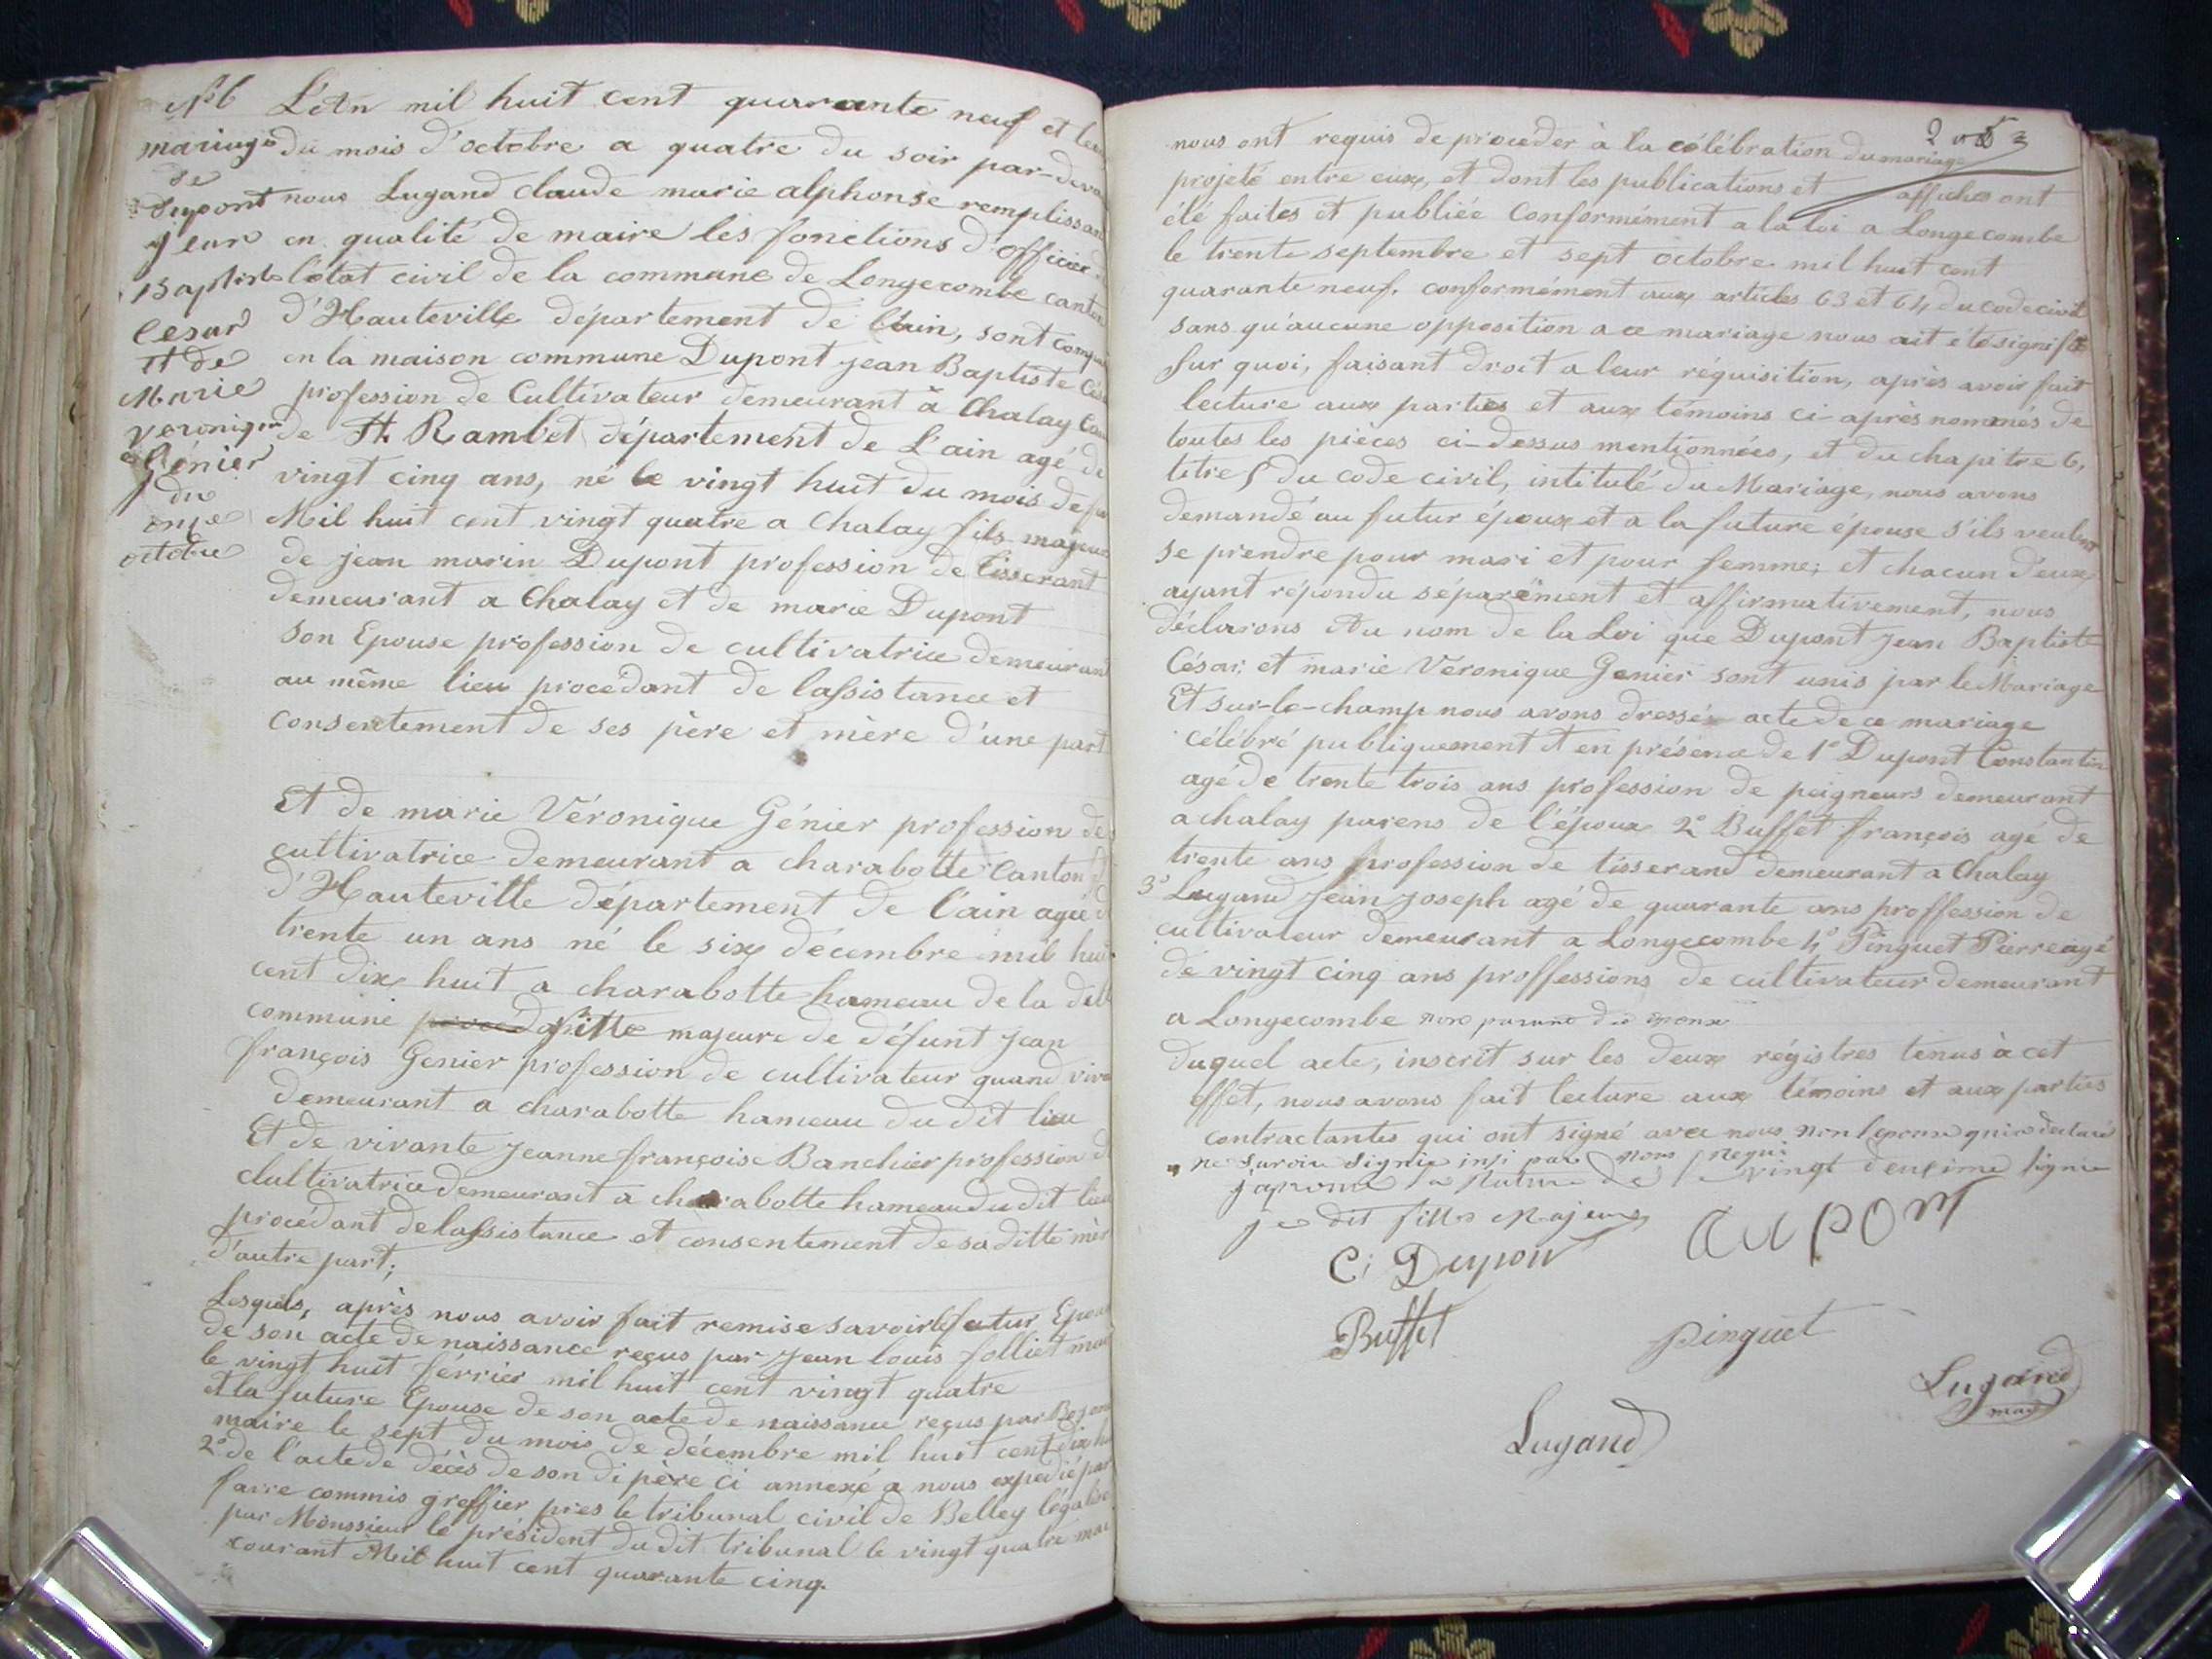 N°6
mariage
de
Dupont
Jean
Baptiste
Cesar
Et de
Marie
Veronique
Génier
du
onze
octobre
L'An mil huit cent quarante neuf et le
du mois d'octobre a quatre du soir par-deva
nous Lugand claude marie alphonse remplissan
en qualité de maire les fonctions d'officier
l'état civil de la commune de Longecombe canton
d'Hauteville département de l'ain, sont comp
en la maison commune Dupont jean Baptiste Cés
profession de Cultivateur demeurant à Chalay Can
de St. Rambet département de L'ain agé de
vingt cinq ans, né le vingt huit du mois de
Mil huit cent vingt quatre a Chalay fils majeur
de jean marin Dupont profession de tisserant
demeurant a Chalay et de marie Dupont
son Epouse profession de cultivatrice demeurant
au même lieu procédant de lassistance et
consentement de ses père et mère d'une part
Et de marie Véronique Génier profession de
cultivatrice demeurant a charabotte Canton
d'Hauteville département de l'ain agée d
trente un ans né le six décembre mil hui
cent dix huit a charabotte hameau de la dite
commune fille majeure de défunt jean
françois Genier profession de cultivateur quand viva
demeurant a charabotte hameau du dit lieu
Et de vivante jeanne françoise Banchier profession d
clultivatrice demeurant a charabotte hameau du dit lieu
procédant de lassistance et consentement de sa ditte mèr
d'autre part;
Lesquels, après nous avoir fait remise savoir le futur Epou
de son acte de naissance reçus par jean louis folliet mai
le vingt huit février mil huit cent vingt quatre
et la future Epouse de son acte de naissance reçus par
maire le sept du mois de décembre mil huit cent dix hu
2° de l'acte de décès de son di père ci annexé a nous expedié par
favre commis greffier pres le tribunal civil de Belley légalisé
par Monssieur le président du dit tribunal le vingt quatre mai
courant Mil huit cent quarante cinq.
nous ont requis de procéder à la célébration du mariage
projeté entre eux, et dont les publications et affiches ont
été faites et publiée Conformément a la loi a Longecombe
le trente septembre et sept octobre mil huit cent
quarante neuf. conformément aux articles 63 et 64 du code civil
sans qu'aucune opposition a ce mariage nous ait été signifié
Sur quoi, faisant droit a leur réquisition, après avoir fait
lecture aux parties et aux témoins ci-après nommés de
toutes les pièces ci-dessus mentionnées, et du chapitre 6,
titre 5 du code civil, intitulé du Mariage, nous avons
demandé au futur époux et a la future épouse s'ils veulent
se prendre pour mari et pour femme; et chacun d'eux
ayant répondu séparément et affirmativement, nous
déclarons Au nom de la Loi que Dupont Jean Baptiste
César; et marie Véronique Genier sont unis par le Mariage
Et sur-le-champ nous avons dressé acte de ce mariage
célébré publiquement et en présence de 1° Dupont Constantin
agé de trente trois ans profession de peigneurs demeurant
a chalay parens de l'époux 2° Buffet françois agé de
trente ans profession de tisserand demeurant a Chalay
3° Lugand Jean joseph agé de quarante ans proffession de
cultivateur demeurant a Longecombe 4° Pinguet Pierre agé
de vingt cinq ans proffessions de cultivateur demeurant
a Longecombe non parans des epoux
duquel acte, inscrit sur les deux régistres tenus à cet
effet, nous avons fait lecture aux témoins et aux parties
contractantes qui ont signé avec nous non lepouse qui a declaré
ne savoir signie
vingt deuxime ligne
je dit fille Majeure
C; Dupont
dupont
Buffet
pinguet
Lugand
maire
Lugand